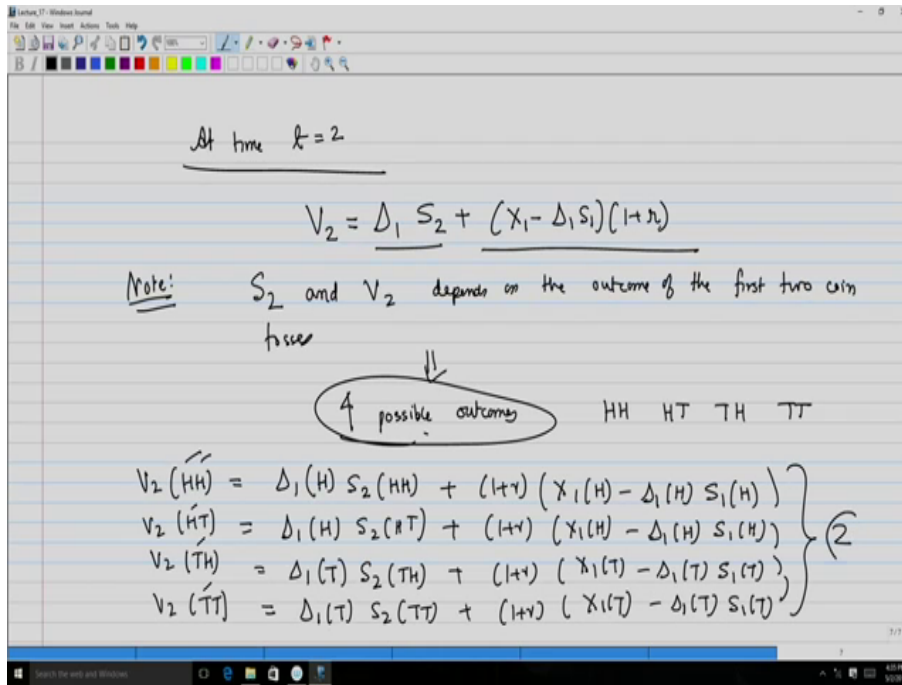 Lecture_17 - Windows Journal
File Edit View Insert Actions Tools Help
B I
At time t = 2
V₂ = Δ₁ S₂ + (X₁ - Δ₁S₁)(1+r)
Note: S₂ and V₂ depends on the outcome of the first two coin
tosses
⇓
4 possible outcomes HH HT TH TT
V₂ (HH) = Δ₁(H) S₂(HH) + (1+r) (X₁(H) - Δ₁(H) S₁(H))
V₂ (HT) = Δ₁(H) S₂(HT) + (1+r) (X₁(H) - Δ₁(H) S₁(H))
V₂ (TH) = Δ₁(T) S₂(TH) + (1+r) (X₁(T) - Δ₁(T) S₁(T))
V₂ (TT) = Δ₁(T) S₂(TT) + (1+r) (X₁(T) - Δ₁(T) S₁(T))
2
7/7
7
Search the web and Windows